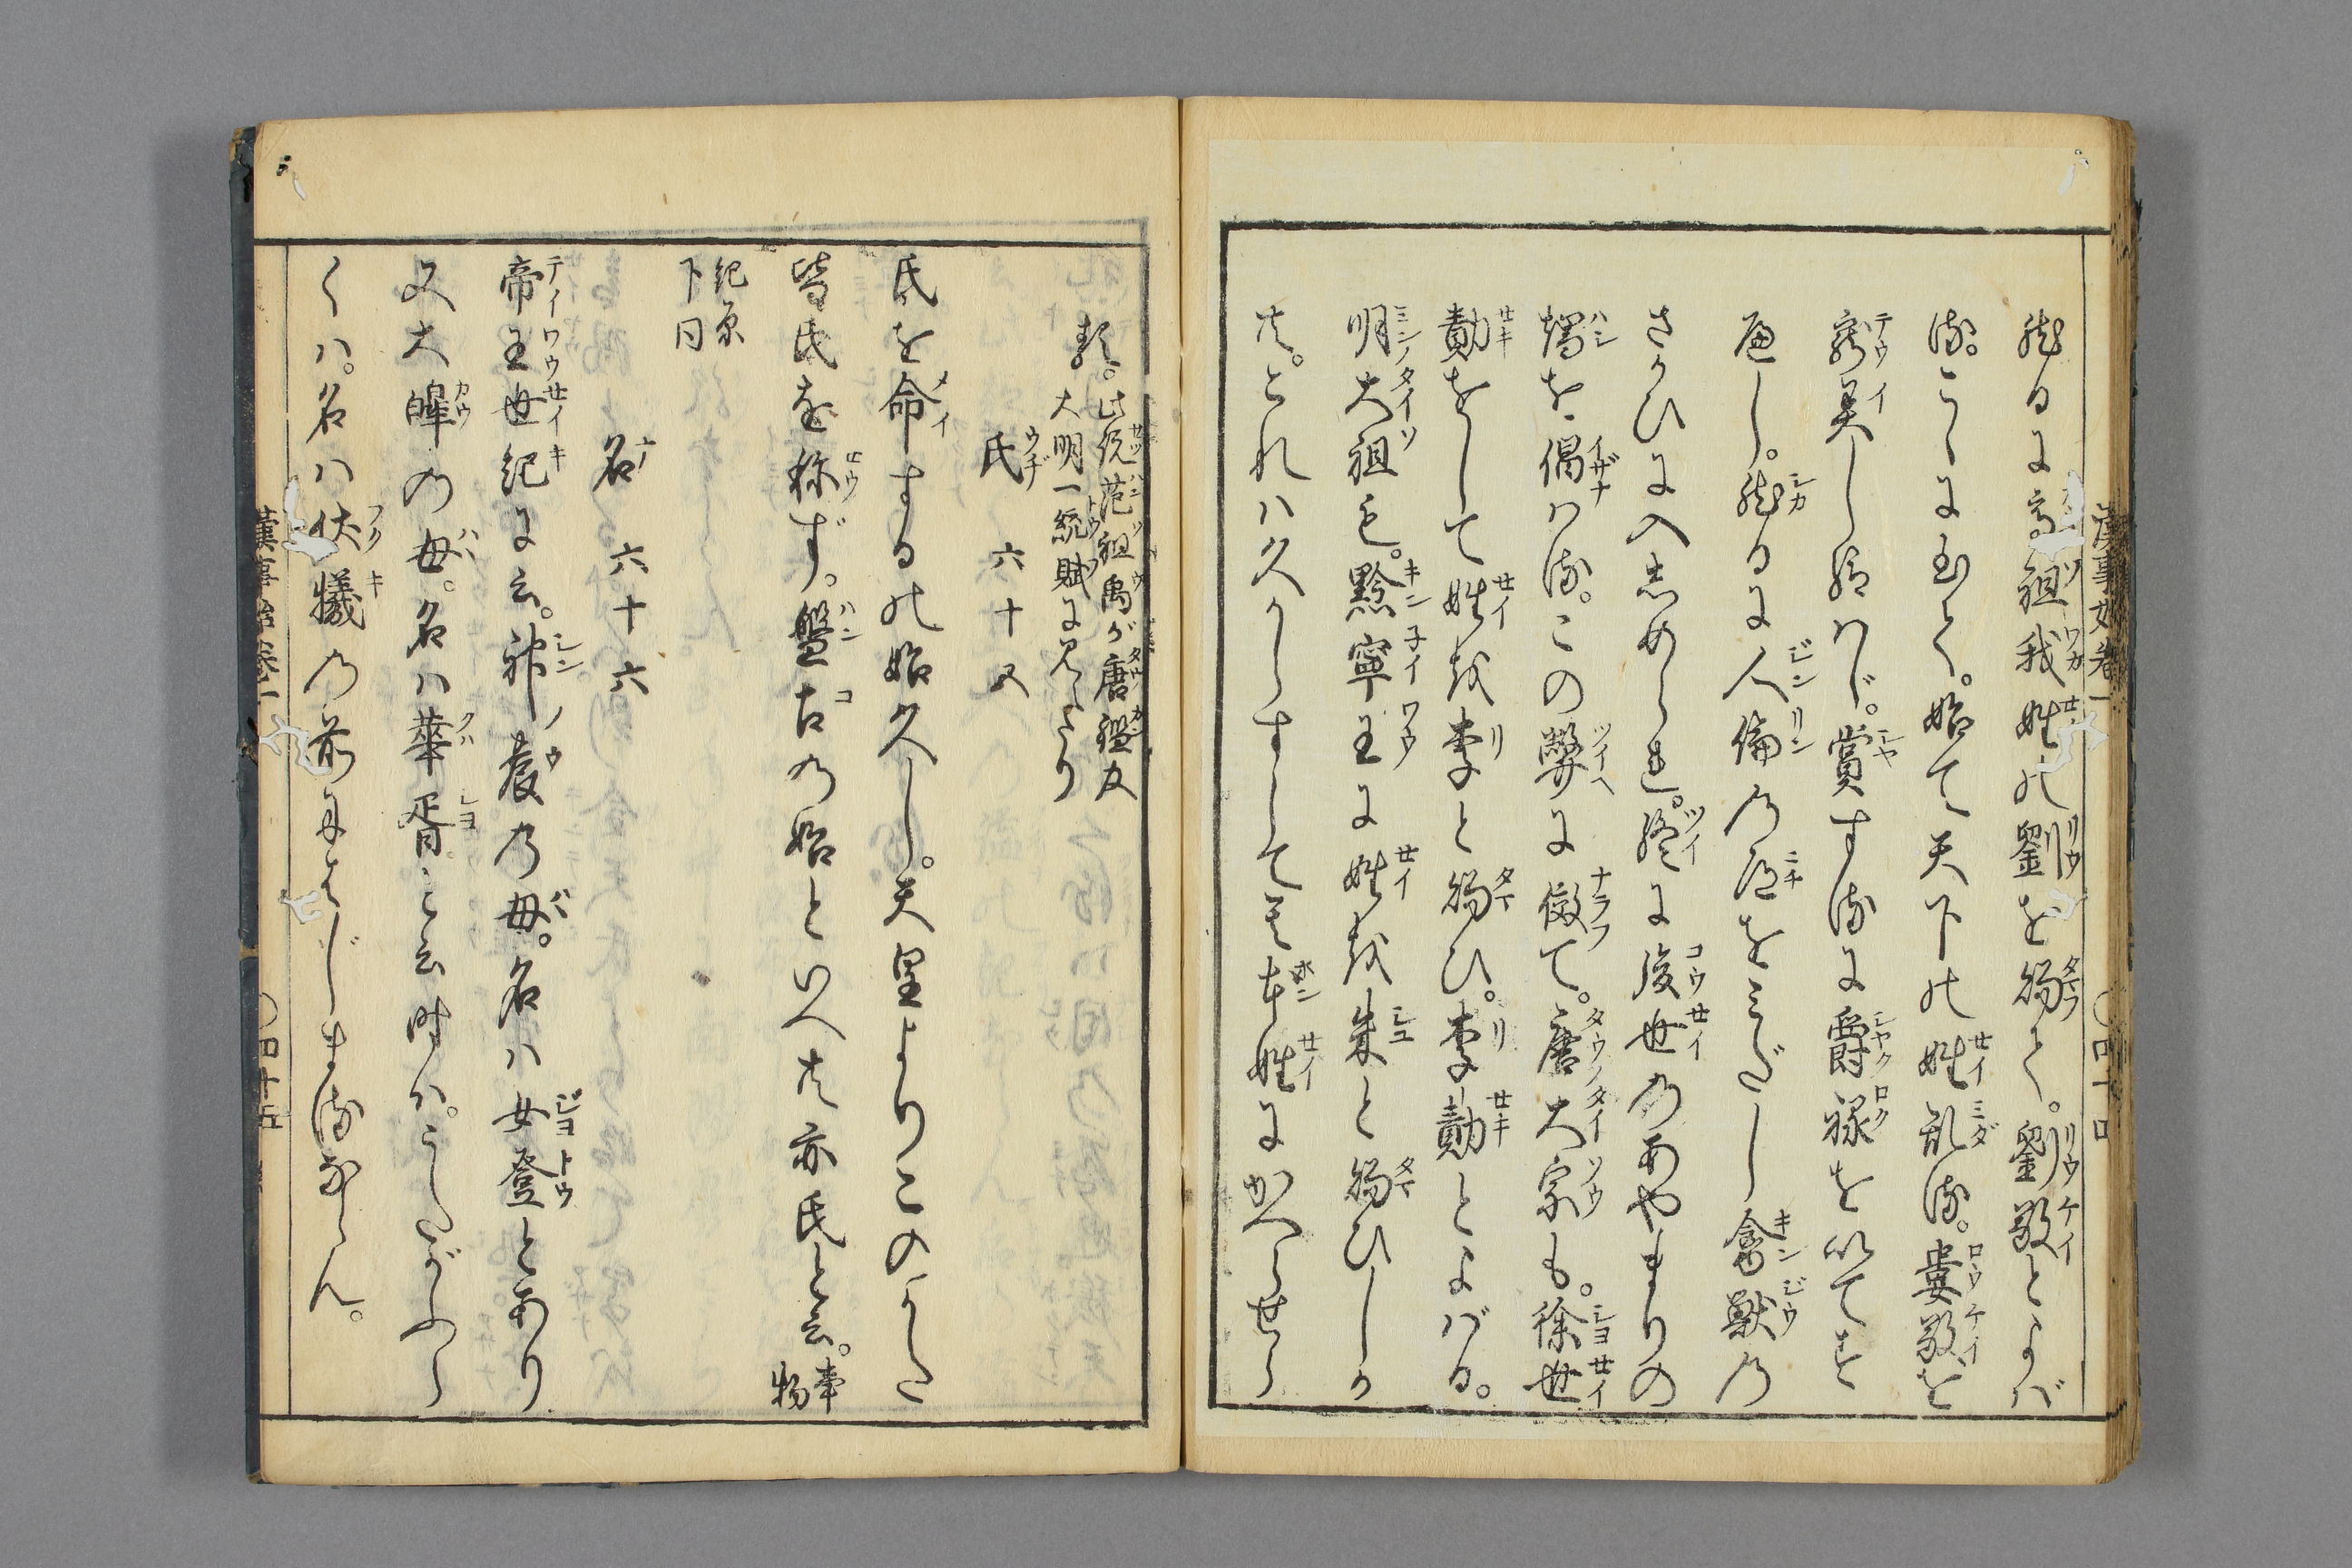 漢事始巻一　〇四十四
然るに高祖我姓の劉を賜て。劉敬とよバ
る。こゝに至て。始て天下の姓乱る。婁敬を
寵異し給ハゞ。賞するに爵禄を以てす
べし。然るに人倫の道をみだし禽獣の
さかひに入しめられ。終に後世のあやまりの
端を。偶ハる。この弊に倣て。唐大宗も。徐世
勣をして姓を李と賜ひ。李勣とよバる。
明大祖も。黔寧王に姓を朱と賜ひしか
共。これハ久からずしてそ本姓にかへらせら
る。此説范祖禹が唐鑑及
大明一統賦に見えたり
氏　六十五
氏を命する始久し。天皇よりこのかた
皆氏を称ず。盤古の始といへ共亦氏と云。事物
紀原
下同
名　六十六
帝王世紀に云。神農の母。名ハ女登とあり
又大皡の母。名ハ華胥と云時ハ。うたがふら
くハ。名ハ伏犠の前にはじまるならん。
漢事始巻一　〇四十五